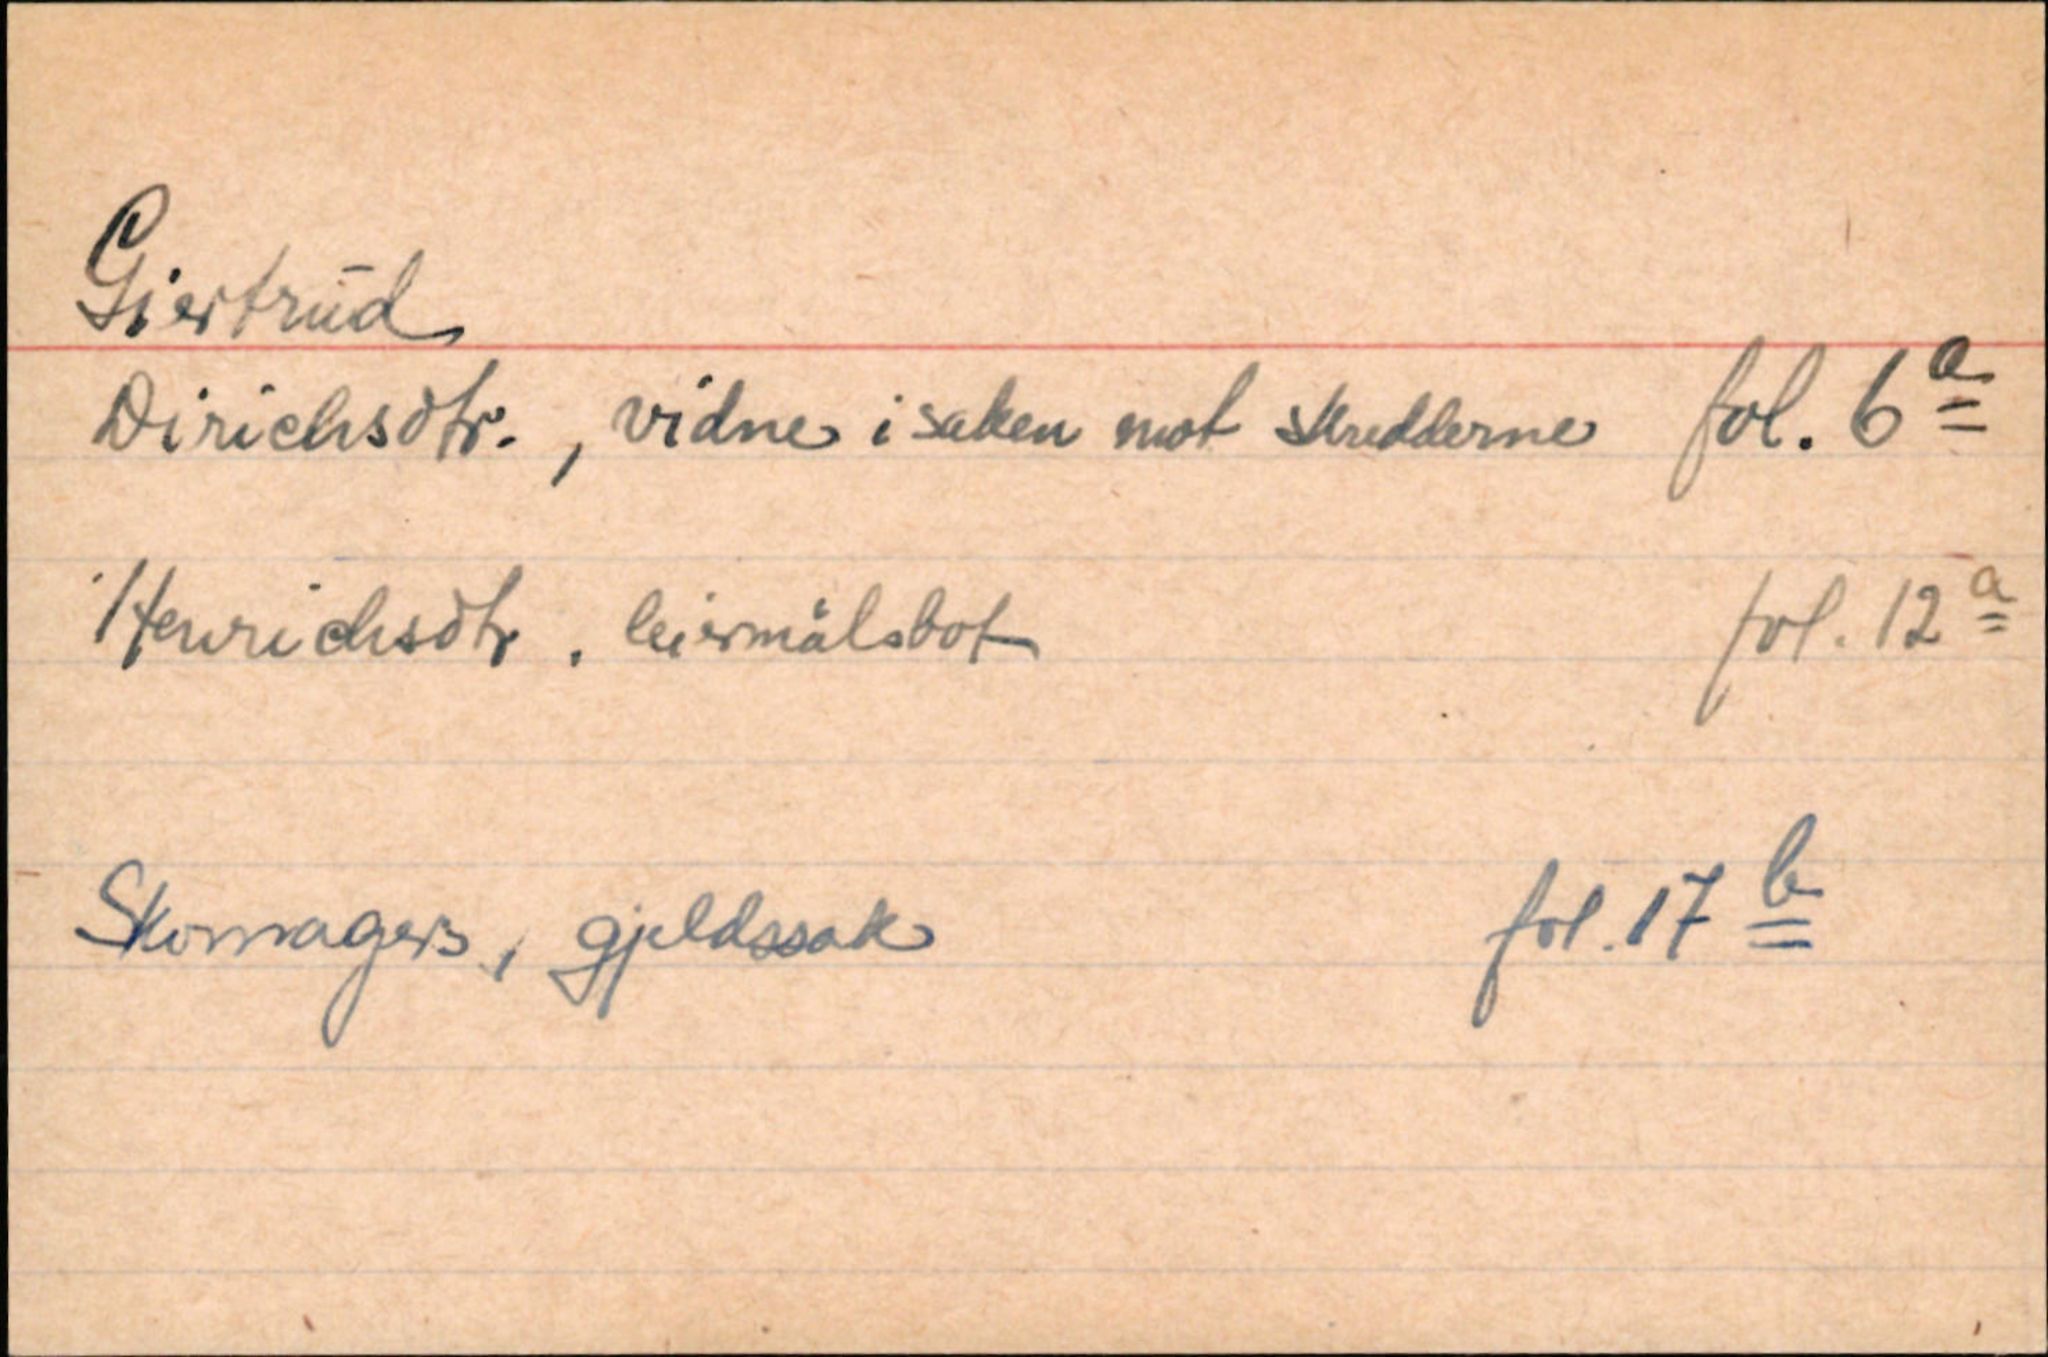 Giertrūd
Dirichsdtr., vidne i saken mot skredderne fol. 6a
Henrichsdtr. leiermålsbot fol. 12a
Skomagers, gjeldssak fol. 17b